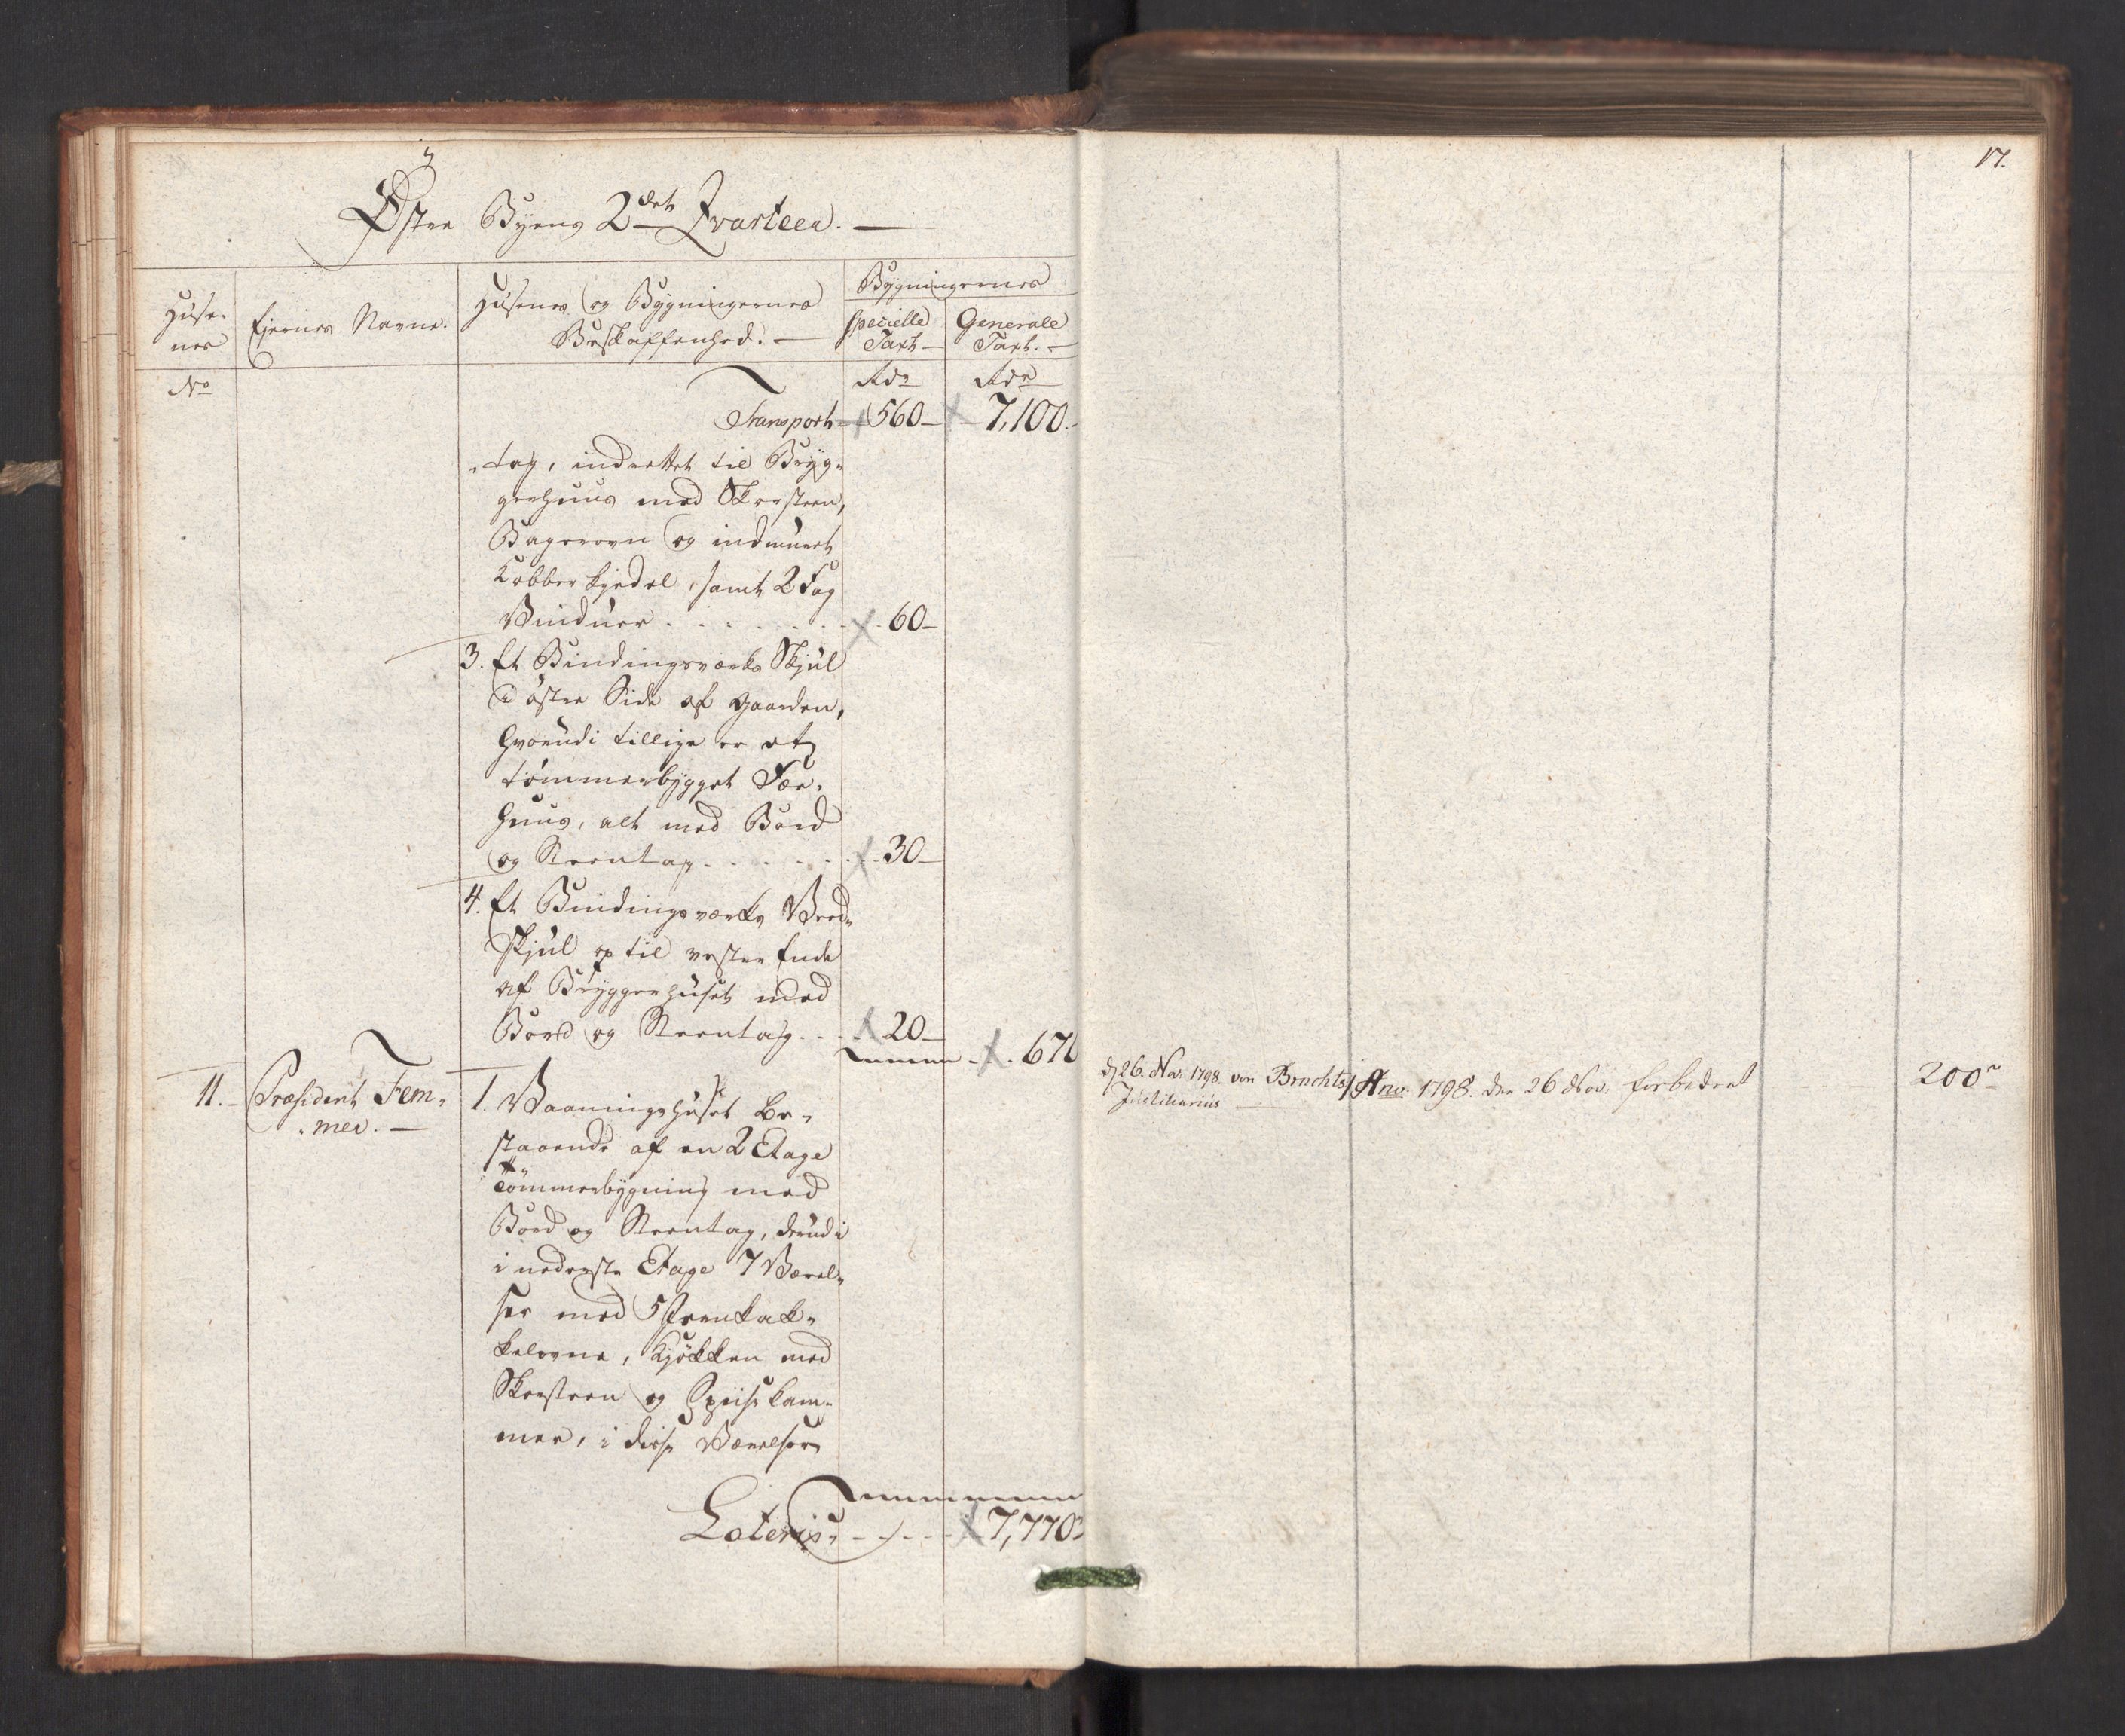 Østre Byens 2det Qvarteer.
Huse-
nes
Ejernes Navne.
Husenes og Bygningernes
Beskaffenhed.
Bygningernes
specielle
Taxt
Generale
Taxt.
No
Rdr
Rdr
Transport 560 7,100.
tag, indrettet til Bryg-
gerhuus med Skorsteen,
Bagerovn og indmuret
Kobberkjedel, samt 2 Fag
Vinduer . . . . . . . 60
3. Et Bindingsværks Skjul
i östre Side af Gaarden,
hvorudi tillige er et
tömmerbygget Fæe-
huus, alt med Bord
og Steentag . . . . . . 30
4. Et Bindingsværks Veed-
skjul op til vestre Ende
af Bryggerhuset med
Bord og Steentag . . . 20
670
11. Præsident Fem-
mer.
1. Vaaningshuset be-
staaende af en 2 Etage
Tömmerbygning med
Bord og Steentag, derudi
i nederste Etage 7 Værel-
ser med 5 Jernkak-
kelovne, Kjökken med
Skorsteen og Spiisekam-
mer, i disse Værelser
Lateris 7,770
17.
d 26. Nov. 1798. von Brachts
Justitiarius
Ano. 1798. den 26 Nov. forbedret
200